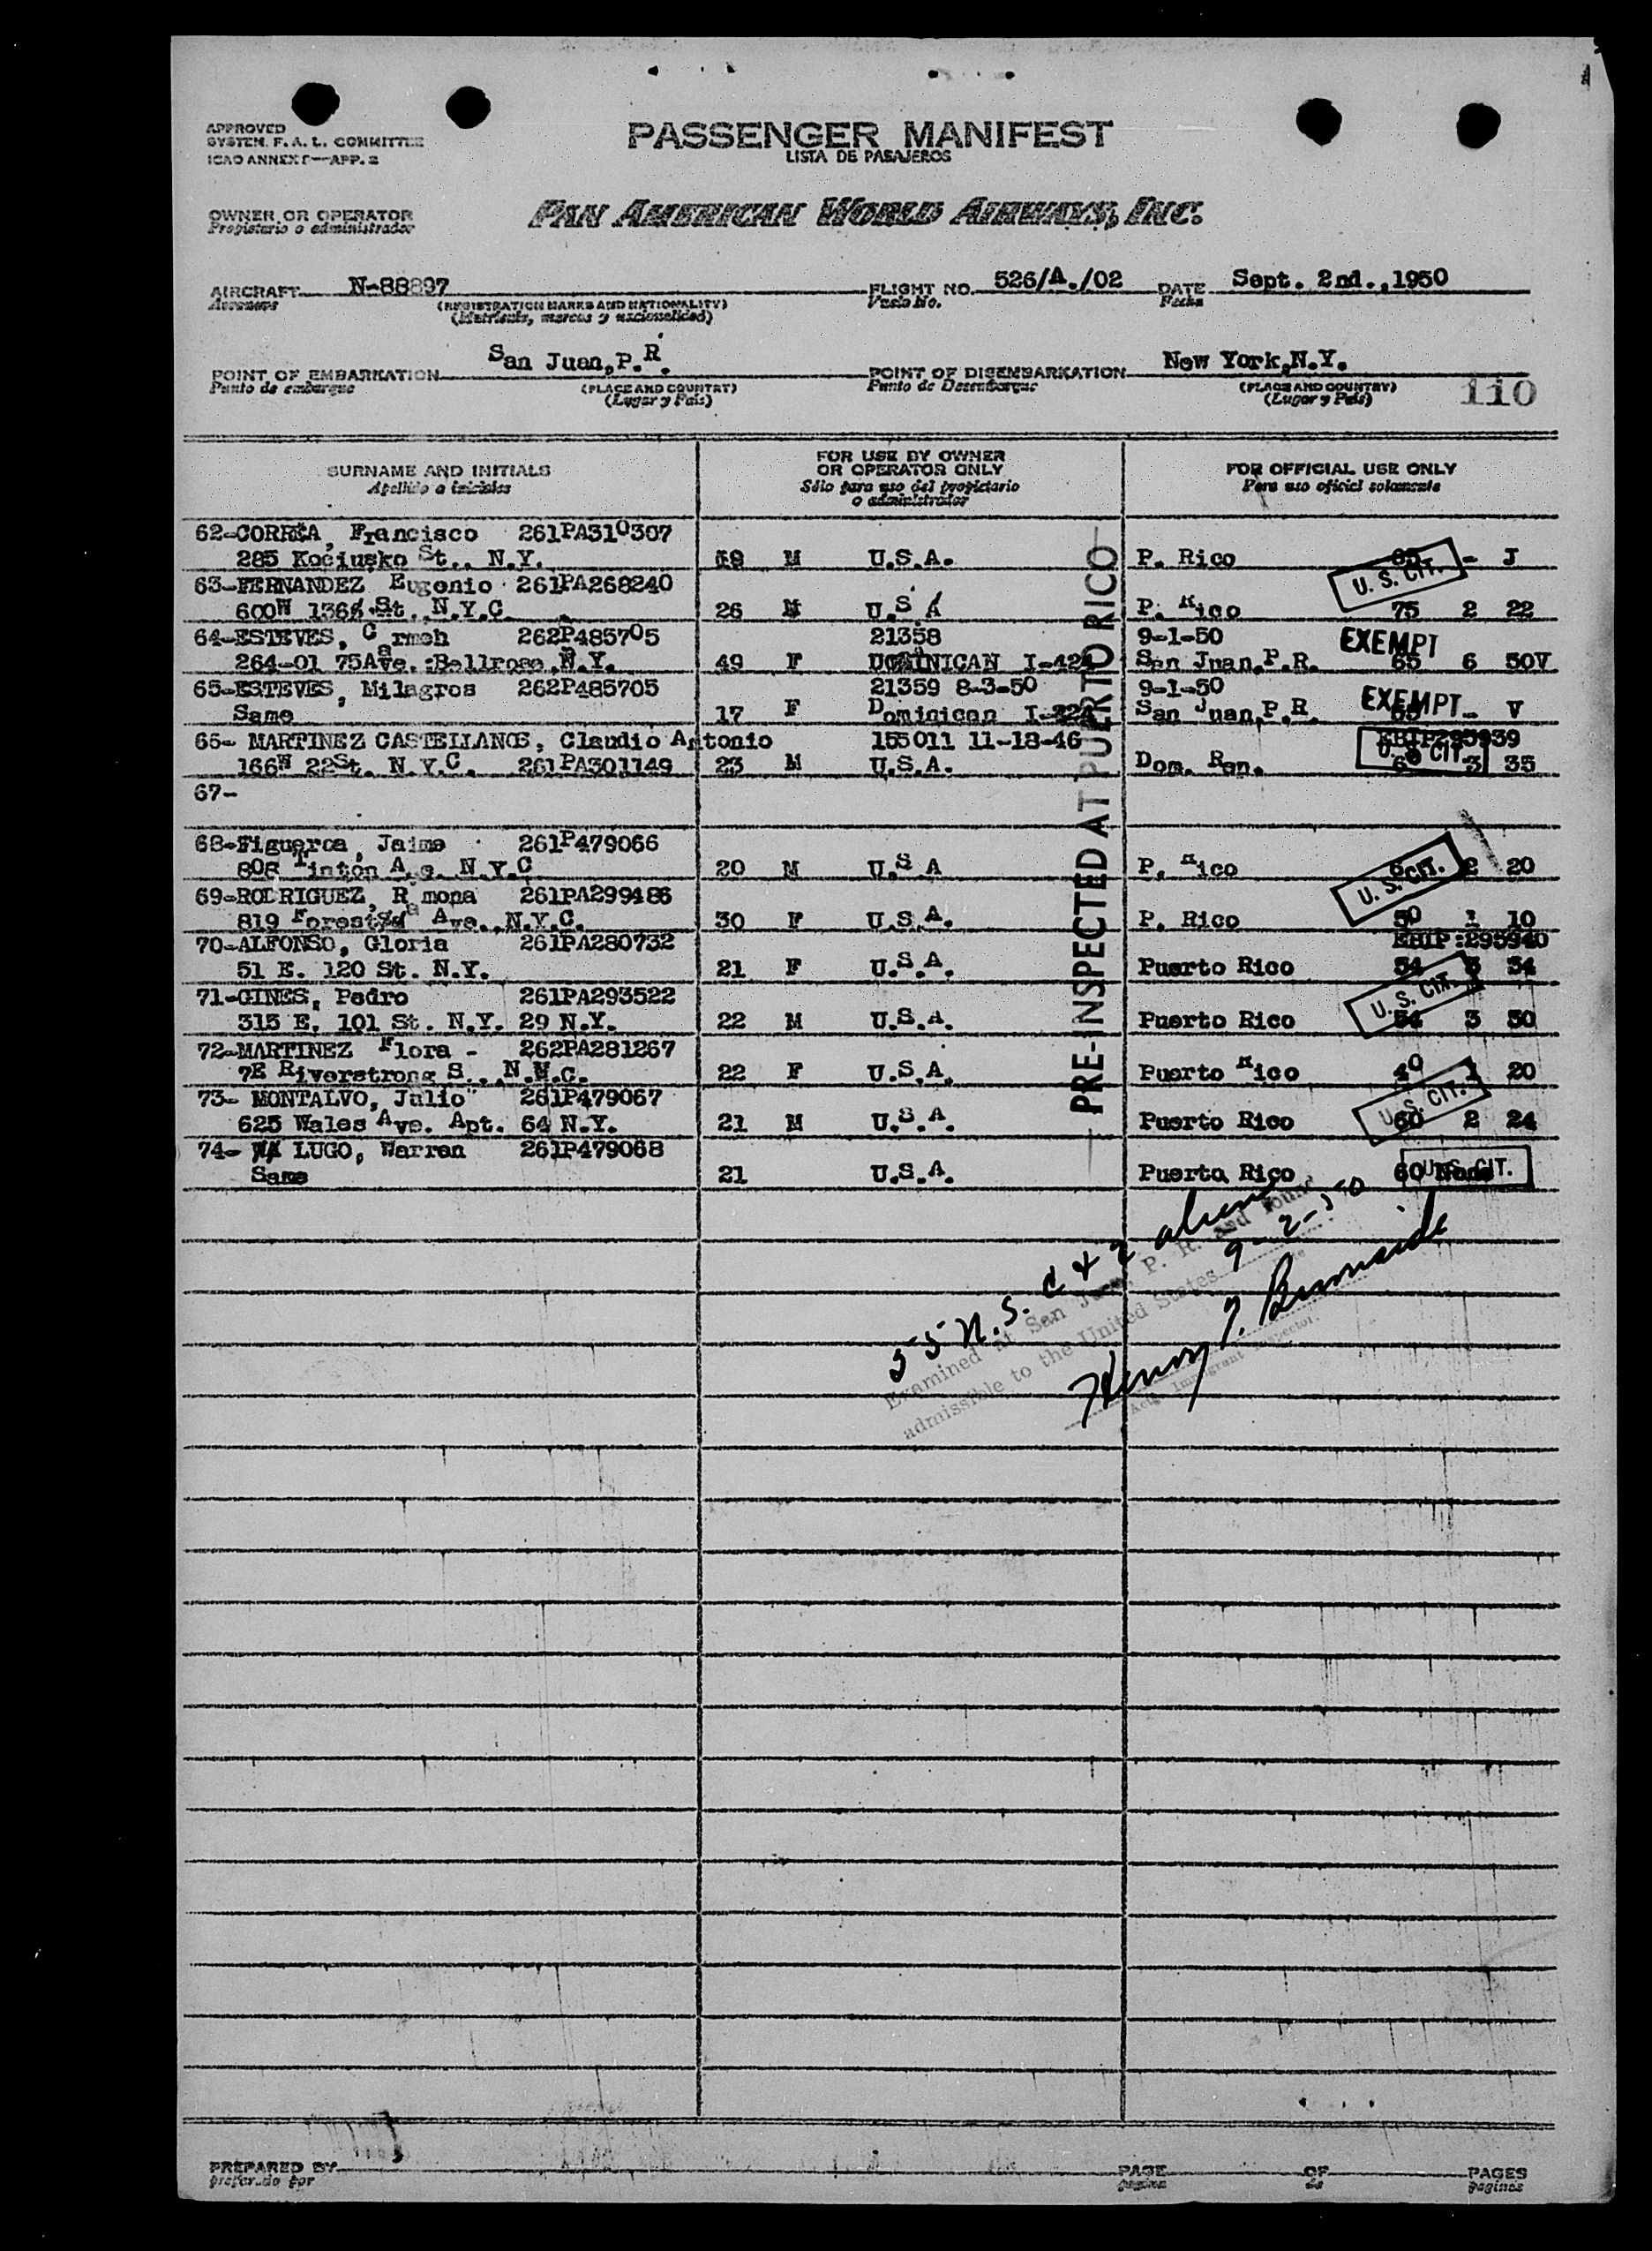 APPROVED
SYSTEM. F. A. L. COMMITTEE
ICAO ANNEX 9—APP. 2
PASSENGER MANIFEST
LISTA DE PASAJEROS
OWNER OR OPERATOR
Propietario o administrador
PAN AMERICAN WORLD AIRWAYS, INC.
AIRCRAFT N-88897 FLIGHT NO. 526/A./02 DATE Sept. 2nd.,1950
Aeronave (REGISTRATION MARKS AND NATIONALITY) Vuelo No. Fecha
(Matrícula, marcas y nacionalidad)
POINT OF EMBARKATION San Juan,P.R. POINT OF DISEMBARKATION New York,N.Y.
Punto de embarque (PLACE AND COUNTRY) Punto de Desembarque (PLACE AND COUNTRY)
(Lugar y País) (Lugar y País) 110
SURNAME AND INITIALS FOR USE BY OWNER OR OPERATOR ONLY FOR OFFICIAL USE ONLY
Apellido e iniciales Sólo para uso del propietario o administrador Para uso oficial solamente
62-CORREA, Francisco 261PA310307
285 Kociusko St., N.Y. M U.S.A. P. Rico - J
U. S. CIT.
63-FERNANDEZ Eugenio 261PA268240
600W 136 St. N.Y.C. 26 M U.S A P. Rico 75 2 22
64-ESTEVES, Carmen 262P485705 21358 9-1-50 EXEMPT
264-01 75Ave. Bellrose,N.Y. 49 F DOMINICAN San Juan,P.R. 65 6 50V
65-ESTEVES, Milagros 262P485705 21359 8-3-50 9-1-50 EXEMPT
Same 17 F Dominican San Juan,P.R. - V
66- MARTINEZ CASTELLANOS, Claudio Antonio 155011 11-18-46 EBIP295939
166W 22St. N.Y.C. 261PA301149 23 M U.S.A. Dom. Rep. 3 35
U. S. CIT.
67-
68-Figueroa, Jaime 261P479066
808 Tinton Ave. N.Y.C 20 M U.S A P. Rico 2 20
U. S. CIT.
69-RODRIGUEZ, Ramona 261PA299486
819 Forest Ave. N.Y.C. 30 F U.S.A. P. Rico 50 1 10
70-ALFONSO, Gloria 261PA280732 EBIP:295940
51 E. 120 St. N.Y. 21 F U.S.A. Puerto Rico 54 3 34
U. S. CIT.
71-GINES, Pedro 261PA293522
315 E. 101 St. N.Y. 29 N.Y. 22 M U.S.A. Puerto Rico 54 3 30
72-MARTINEZ Flora - 262PA281267
7E Riverstrong S., N.Y.C. 22 F U.S.A. Puerto Rico 40 1 20
U. S. CIT.
73- MONTALVO, Julio 261P479067
625 Wales Ave. Apt. 64 N.Y. 21 M U.S.A. Puerto Rico 60 2 24
74- LUGO, Warren 261P479068
Same 21 U.S.A. Puerto Rico 60 None
U. S. CIT.
PRE-INSPECTED AT PUERTO RICO
55 U.S. C & 2 aliens
Examined at San Juan, P. R. and found
admissible to the United States
9-2-50
Henry J. Burnside
Actg. Immigrant Inspector.
PREPARED BY PAGE OF PAGES
preparado por página de páginas